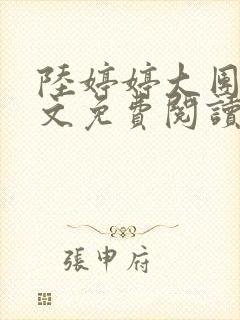 陸婷婷大團
文免費閱讀
張申府